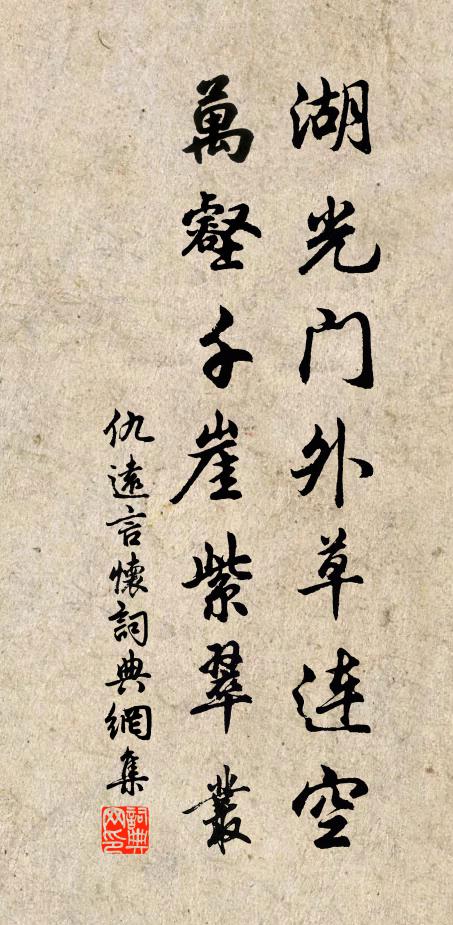 湖光门外草连空
萬壑千崖紫翠叢
仇遠言懷詞典網集
詞典網印